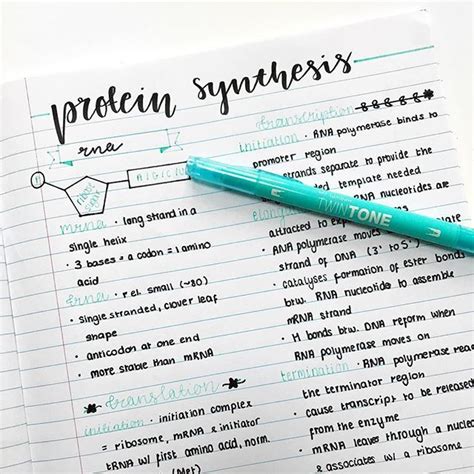 protein synthesis
rna
P
ribose sugar
A|G|C|U
mrna · long strand in a
single helix
· 3 bases = a codon = 1 amino
acid
trna · rel. small (~80)
· single stranded, clover leaf
shape
· anticodon at one end
· more stable than mRNA
translation
initiation · initiation complex
= ribosome, mRNA & initiator
tRNA w/ first amino acid, norm.
(Met)
transcription
initiation · RNA polymerase binds to
promoter region
strands separate to provide the
template needed
RNA nucleotides are
attracted to exp
RNA polymerase moves
strand of DNA (3' to 5')
· catalyses formation of ester bonds
btw. RNA nucleotides to assemble
mRNA strand
· H bonds btw. DNA reform when
RNA polymerase moves on
termination · RNA polymerase rea
the terminator region
· cause transcript to be released
from the enzyme
· mRNA leaves through a nuclea
TWINTONE